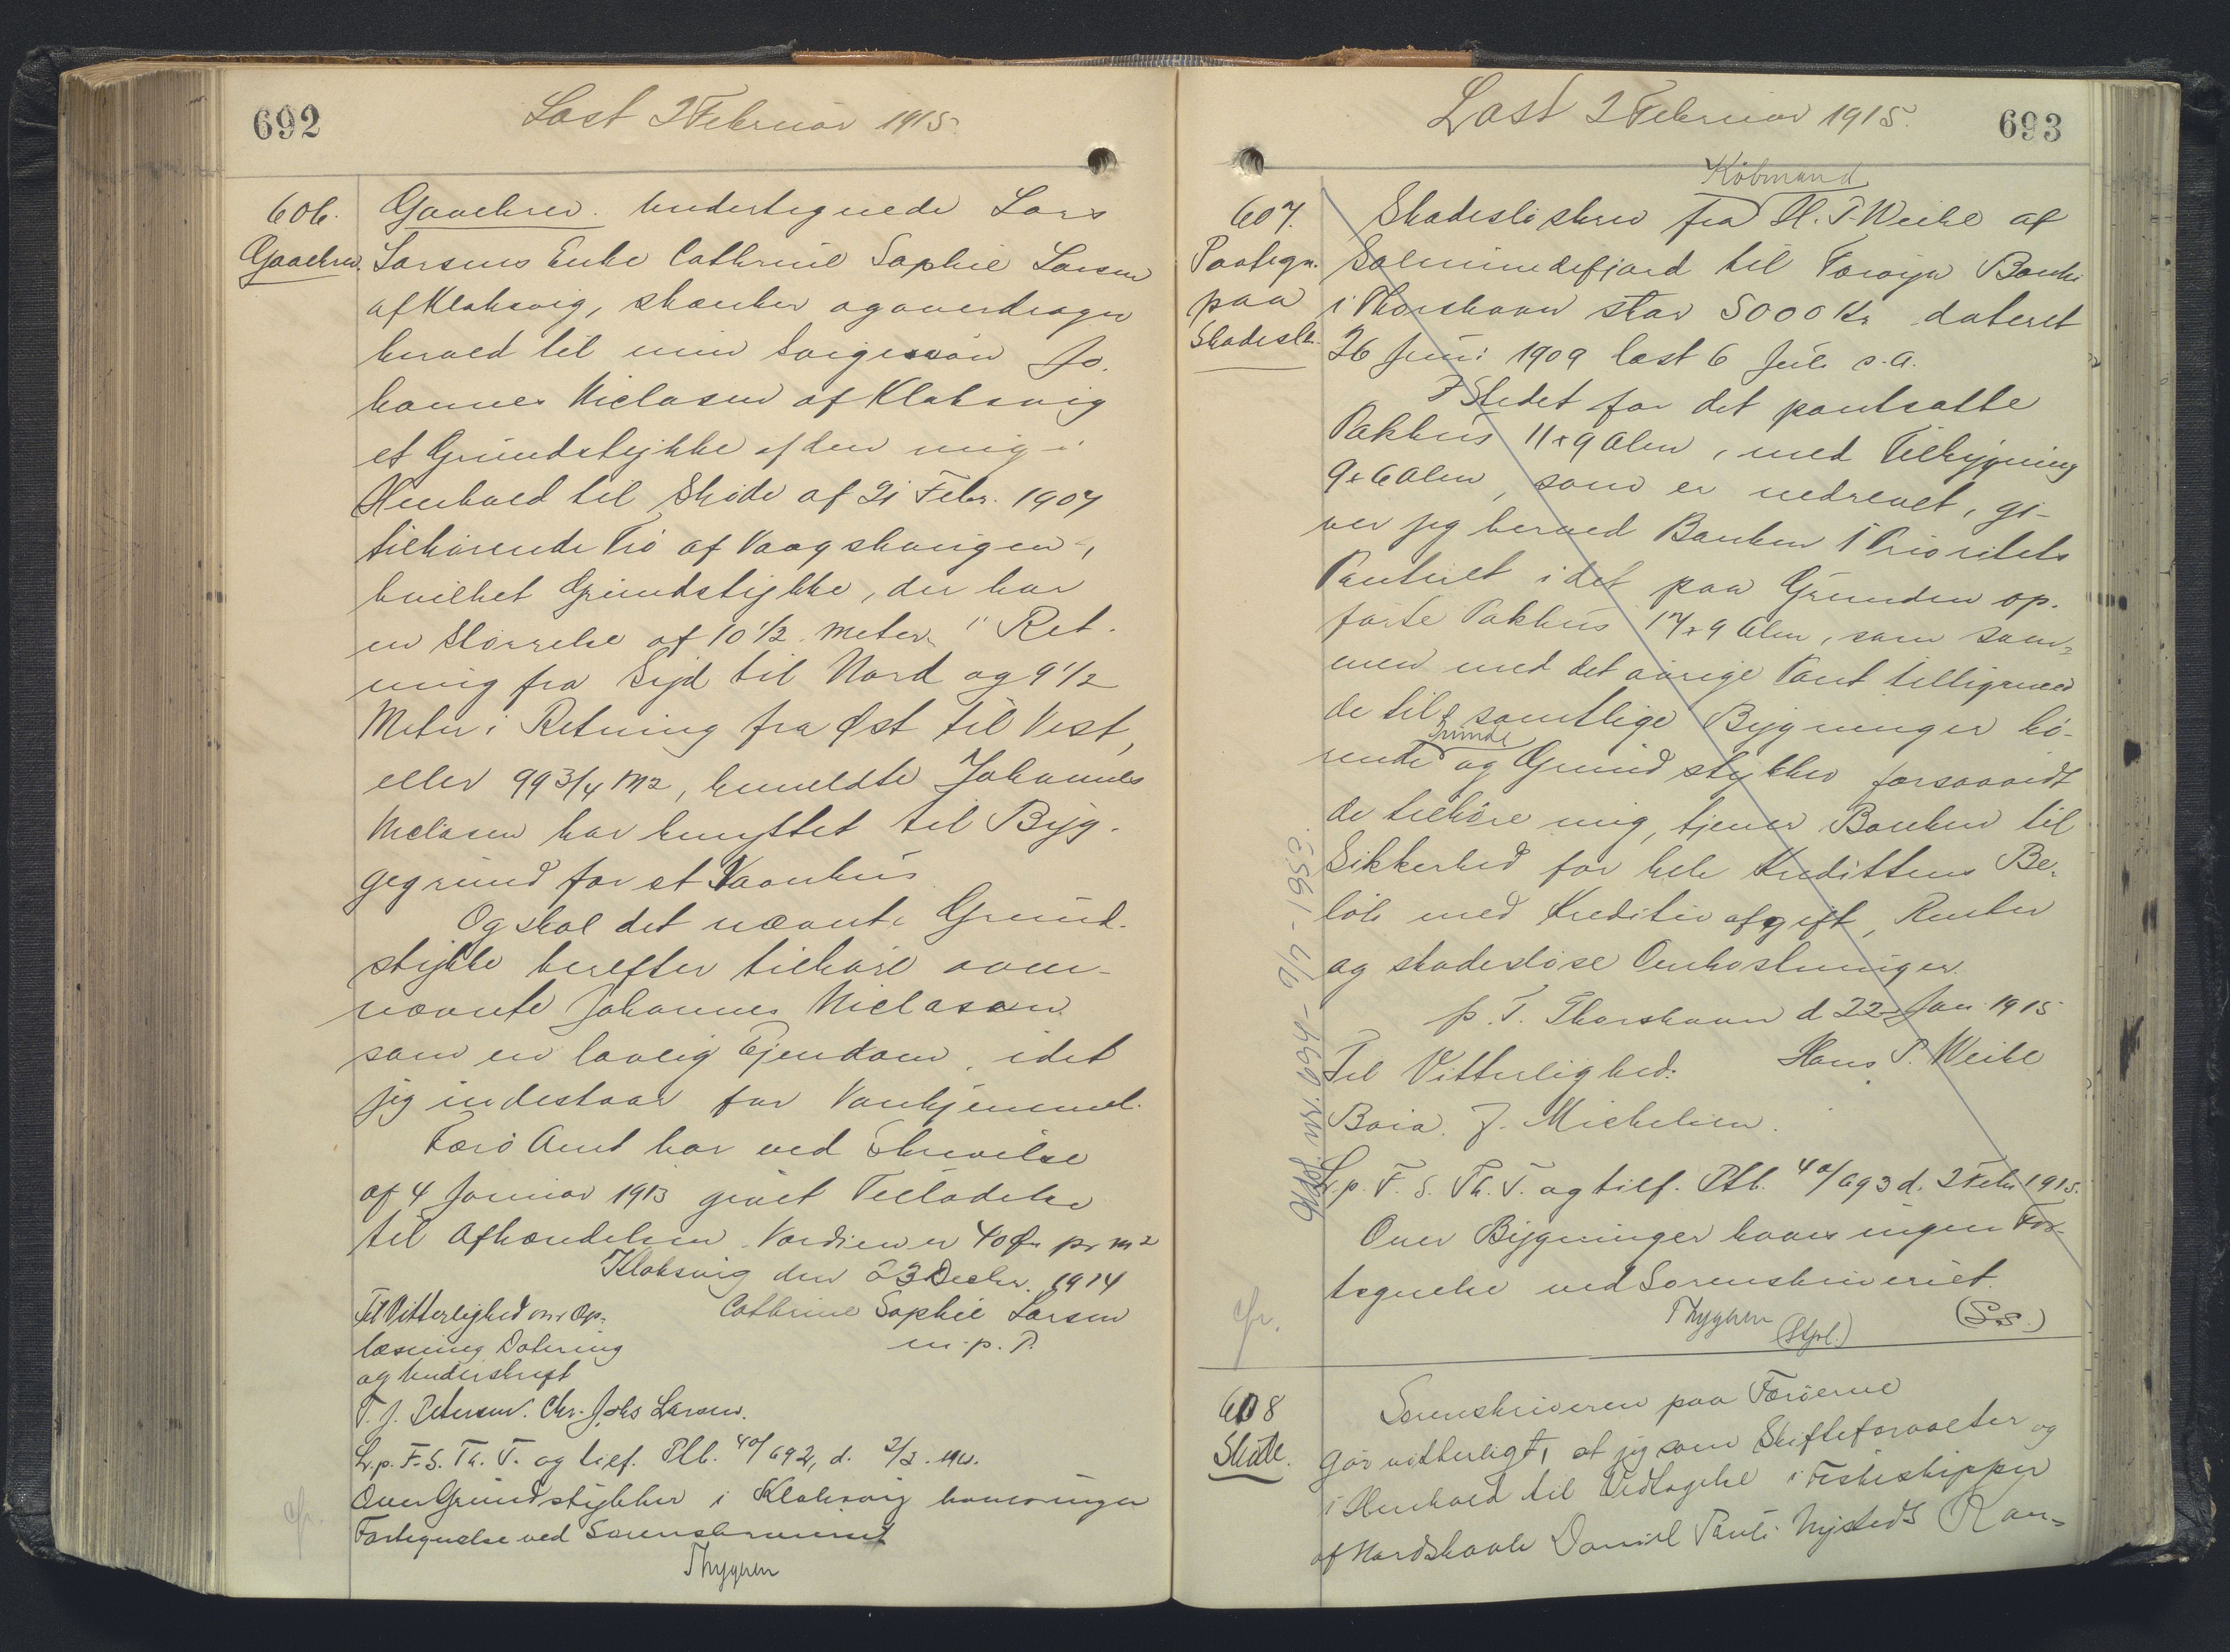 692
Læst 2 Februar 1915.
606.
Gavebrev.
Gavebrev. Undertegnede Lars
Larsens Enke Cathrine Sophie Larsen
af Klaksvig, skænker og overdrager
herved til min Svigersøn Jo-
hannes Niclasen af Klaksvig
et Grundstykke af den mig i
Henhold til Skøde af 21 Febr. 1907
tilhørende Trø af Vaagshavigen,
hvilket Grundstykke, der har
en Størrelse af 10 1/2 Meter i Ret-
ning fra Syd til Nord og 9 1/2
Meter i Retning fra Øst til Vest,
eller 99 3/4 M2, bemeldte Johannes
Niclasen har benyttet til Byg-
gegrund for et Vaanhus
Og skal det nævnte Grund-
stykke herefter tilhøre oven-
nævnte Johannes Niclasen
som en lovlig Ejendom, idet
jeg indestaar for Vanhjemmel.
Færø Amt har ved Skrivelse
af 4 Januar 1913 givet Tilladelse
til Afhændelsen. Værdien er 40 Øre pr m2
Klaksvig den 23 Decbr. 1914
Til Vitterlighed om Op-
Cathrine Sophie Larsen
læsning Datering
m. p. P.
og Underskrift
T. J. Petersen. Chr. Johs Larsen.
L. p. F. S. Th. T. og tilf. Ptb. 40/692, d. 2/2. 1915.
Over Grundstykker i Klaksvig haves ingen
Fortegnelse ved Sorenskriveriet
Thygesen
693
Læst 2 Februar 1915.
607.
Paategn.
paa
Skadeslb.
Købmand
Skadesløsbrev fra H. P. Weihe af
Solmundefjord til Færøya Banki
i Thorshavn stor 5000 Kr dateret
26 Juni 1909 læst 6 Juli s. a.
I Stedet for det pantsatte
Pakhus 11 x 9 Alen, med Tilbygning
9 x 6 Alen, som er nedrevet, gi-
ver jeg herved Banken 1 Prioritets
Panteret i det paa Grunden op-
førte Pakhus 17 x 9 Alen, som sam-
men med det øvrige Pant tilligemed
de til samtlige Bygninger hø-
Grunde
rende og Grundstykker forsaavidt
de tilhøre mig, tjener Banken til
Sikkerhed for hele Kredittens Be-
løb med Kreditivafgift, Renter
og skadesløse Omkostninger.
p. T. Thorshavn d 22 Jan 1915
Til Vitterlighed:
Hans P. Weihe
Baia. J. Michelsen.
L. p. F. S. Th. T. og tilf. Ptb. 40/693 d. 2 Febr 1915.
Over Bygninger haves ingen For-
tegnelse ved Sorenskriveriet.
Thygesen (Stpl.)
(S.S.)
608
Skøde.
Sorenskriveren paa Færøerne
Gør vitterligt, at jeg som Skifteforvalter og
i Henhold til Vedtagelse i Fiskeskipper
af Nordskaale Daniel Pauli Nysteds Kon-